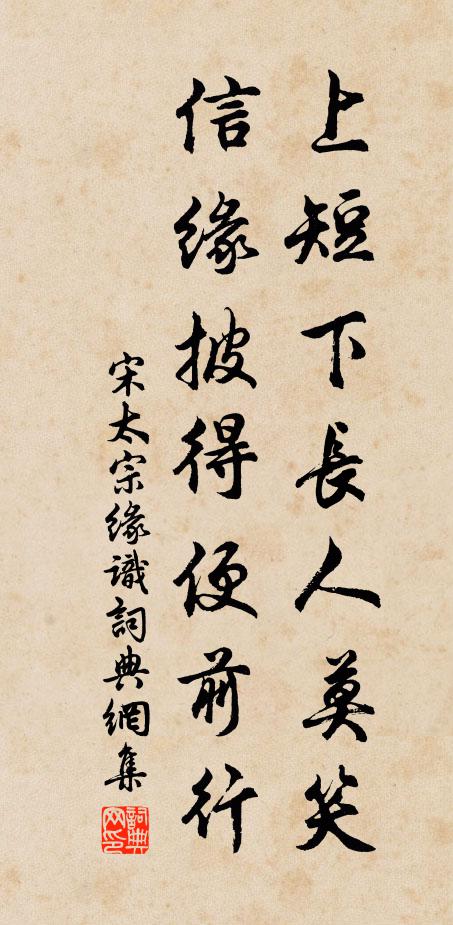 上短下長人莫笑
信緣披得便前行
宋太宗緣識詞典網集
詞典网印